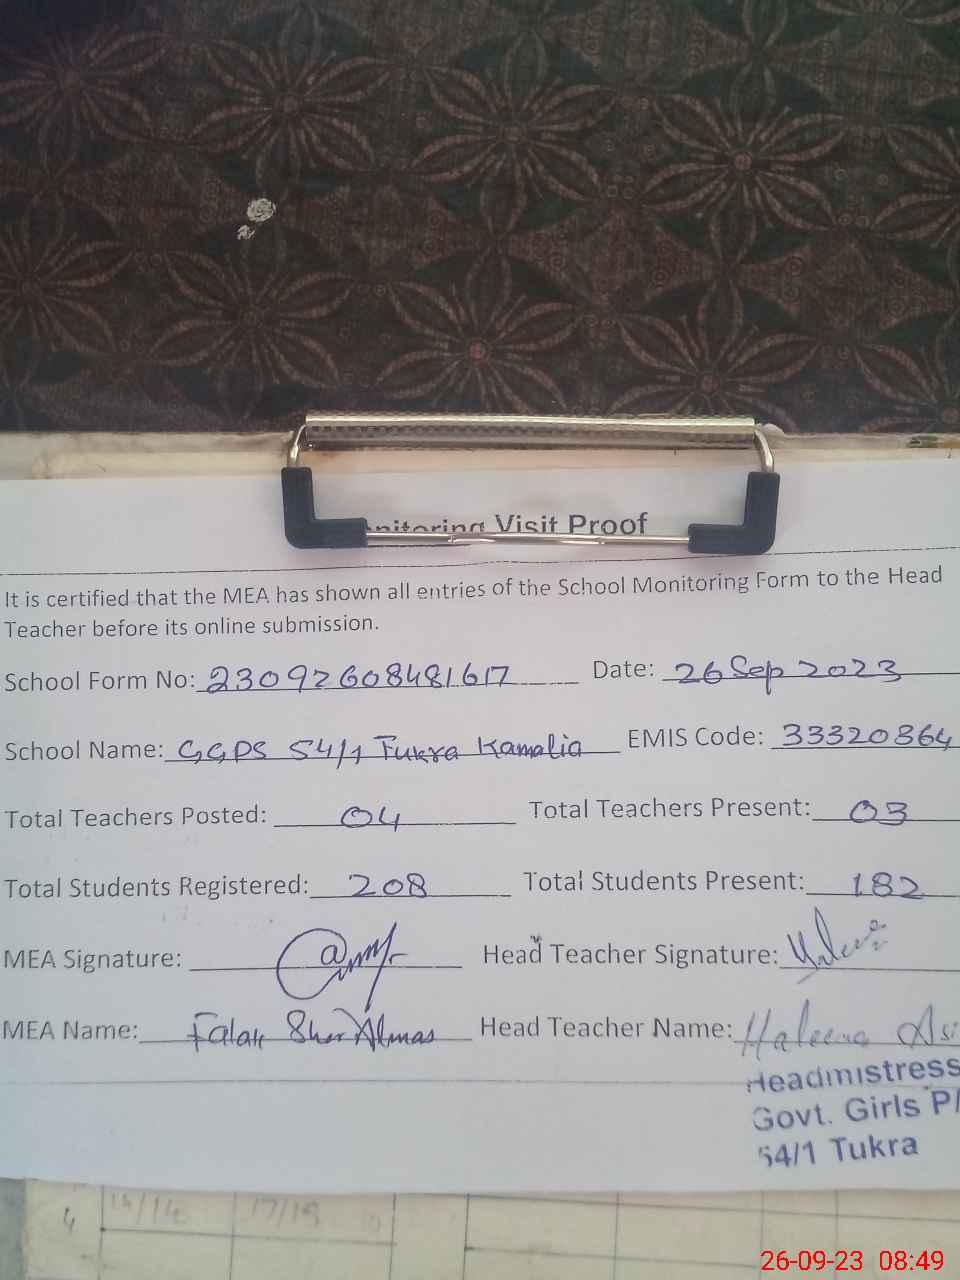 nitoring Visit Proof
It is certified that the MEA has shown all entries of the School Monitoring Form to the Head
Teacher before its online submission.
School Form No: 23092608481617 Date: 26 Sep 2023
School Name: GGPS 54/1 Tukra Kamalia EMIS Code: 33320364
Total Teachers Posted: 04 Total Teachers Present: 03
Total Students Registered: 208 Total Students Present: 182
MEA Signature: Head Teacher Signature:
MEA Name: Falak Sher Almas Head Teacher Name: Haleema Asi
Headmistress
Govt. Girls P/
54/1 Tukra
4 17/19
26-09-23 08:49